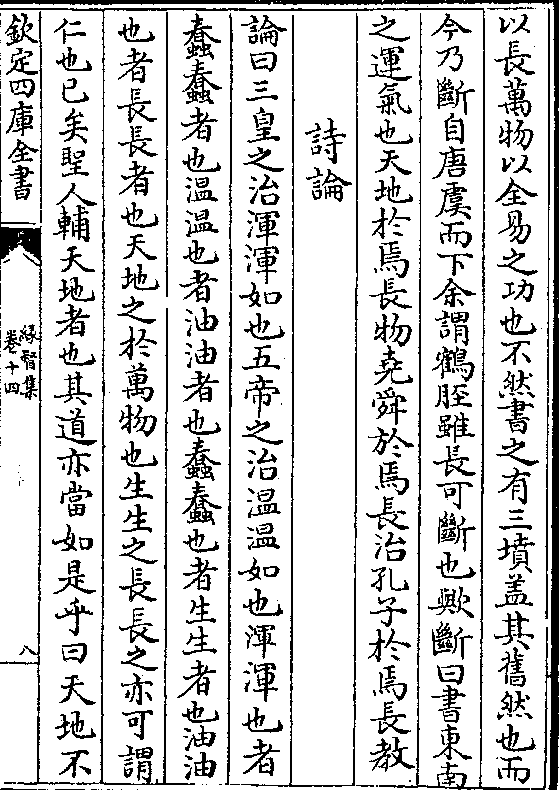 以長萬物以全易之功也不然書之有三墳盖其舊然也而
今乃斷自唐虞而下余謂鶴脛雖長可斷也歟斷曰書東南
之運氣也天地於焉長物堯舜於焉長治孔子於焉長教
詩論
論曰三皇之治渾渾如也五帝之治温温如也渾渾也者
蠢蠢者也温温也者油油者也蠢蠢也者生生者也油油
也者長長者也天地之於萬物也生生之長長之亦可謂
仁也已矣聖人輔天地者也其道亦當如是乎曰天地不
欽定四庫全書
緣督集
卷十四
八